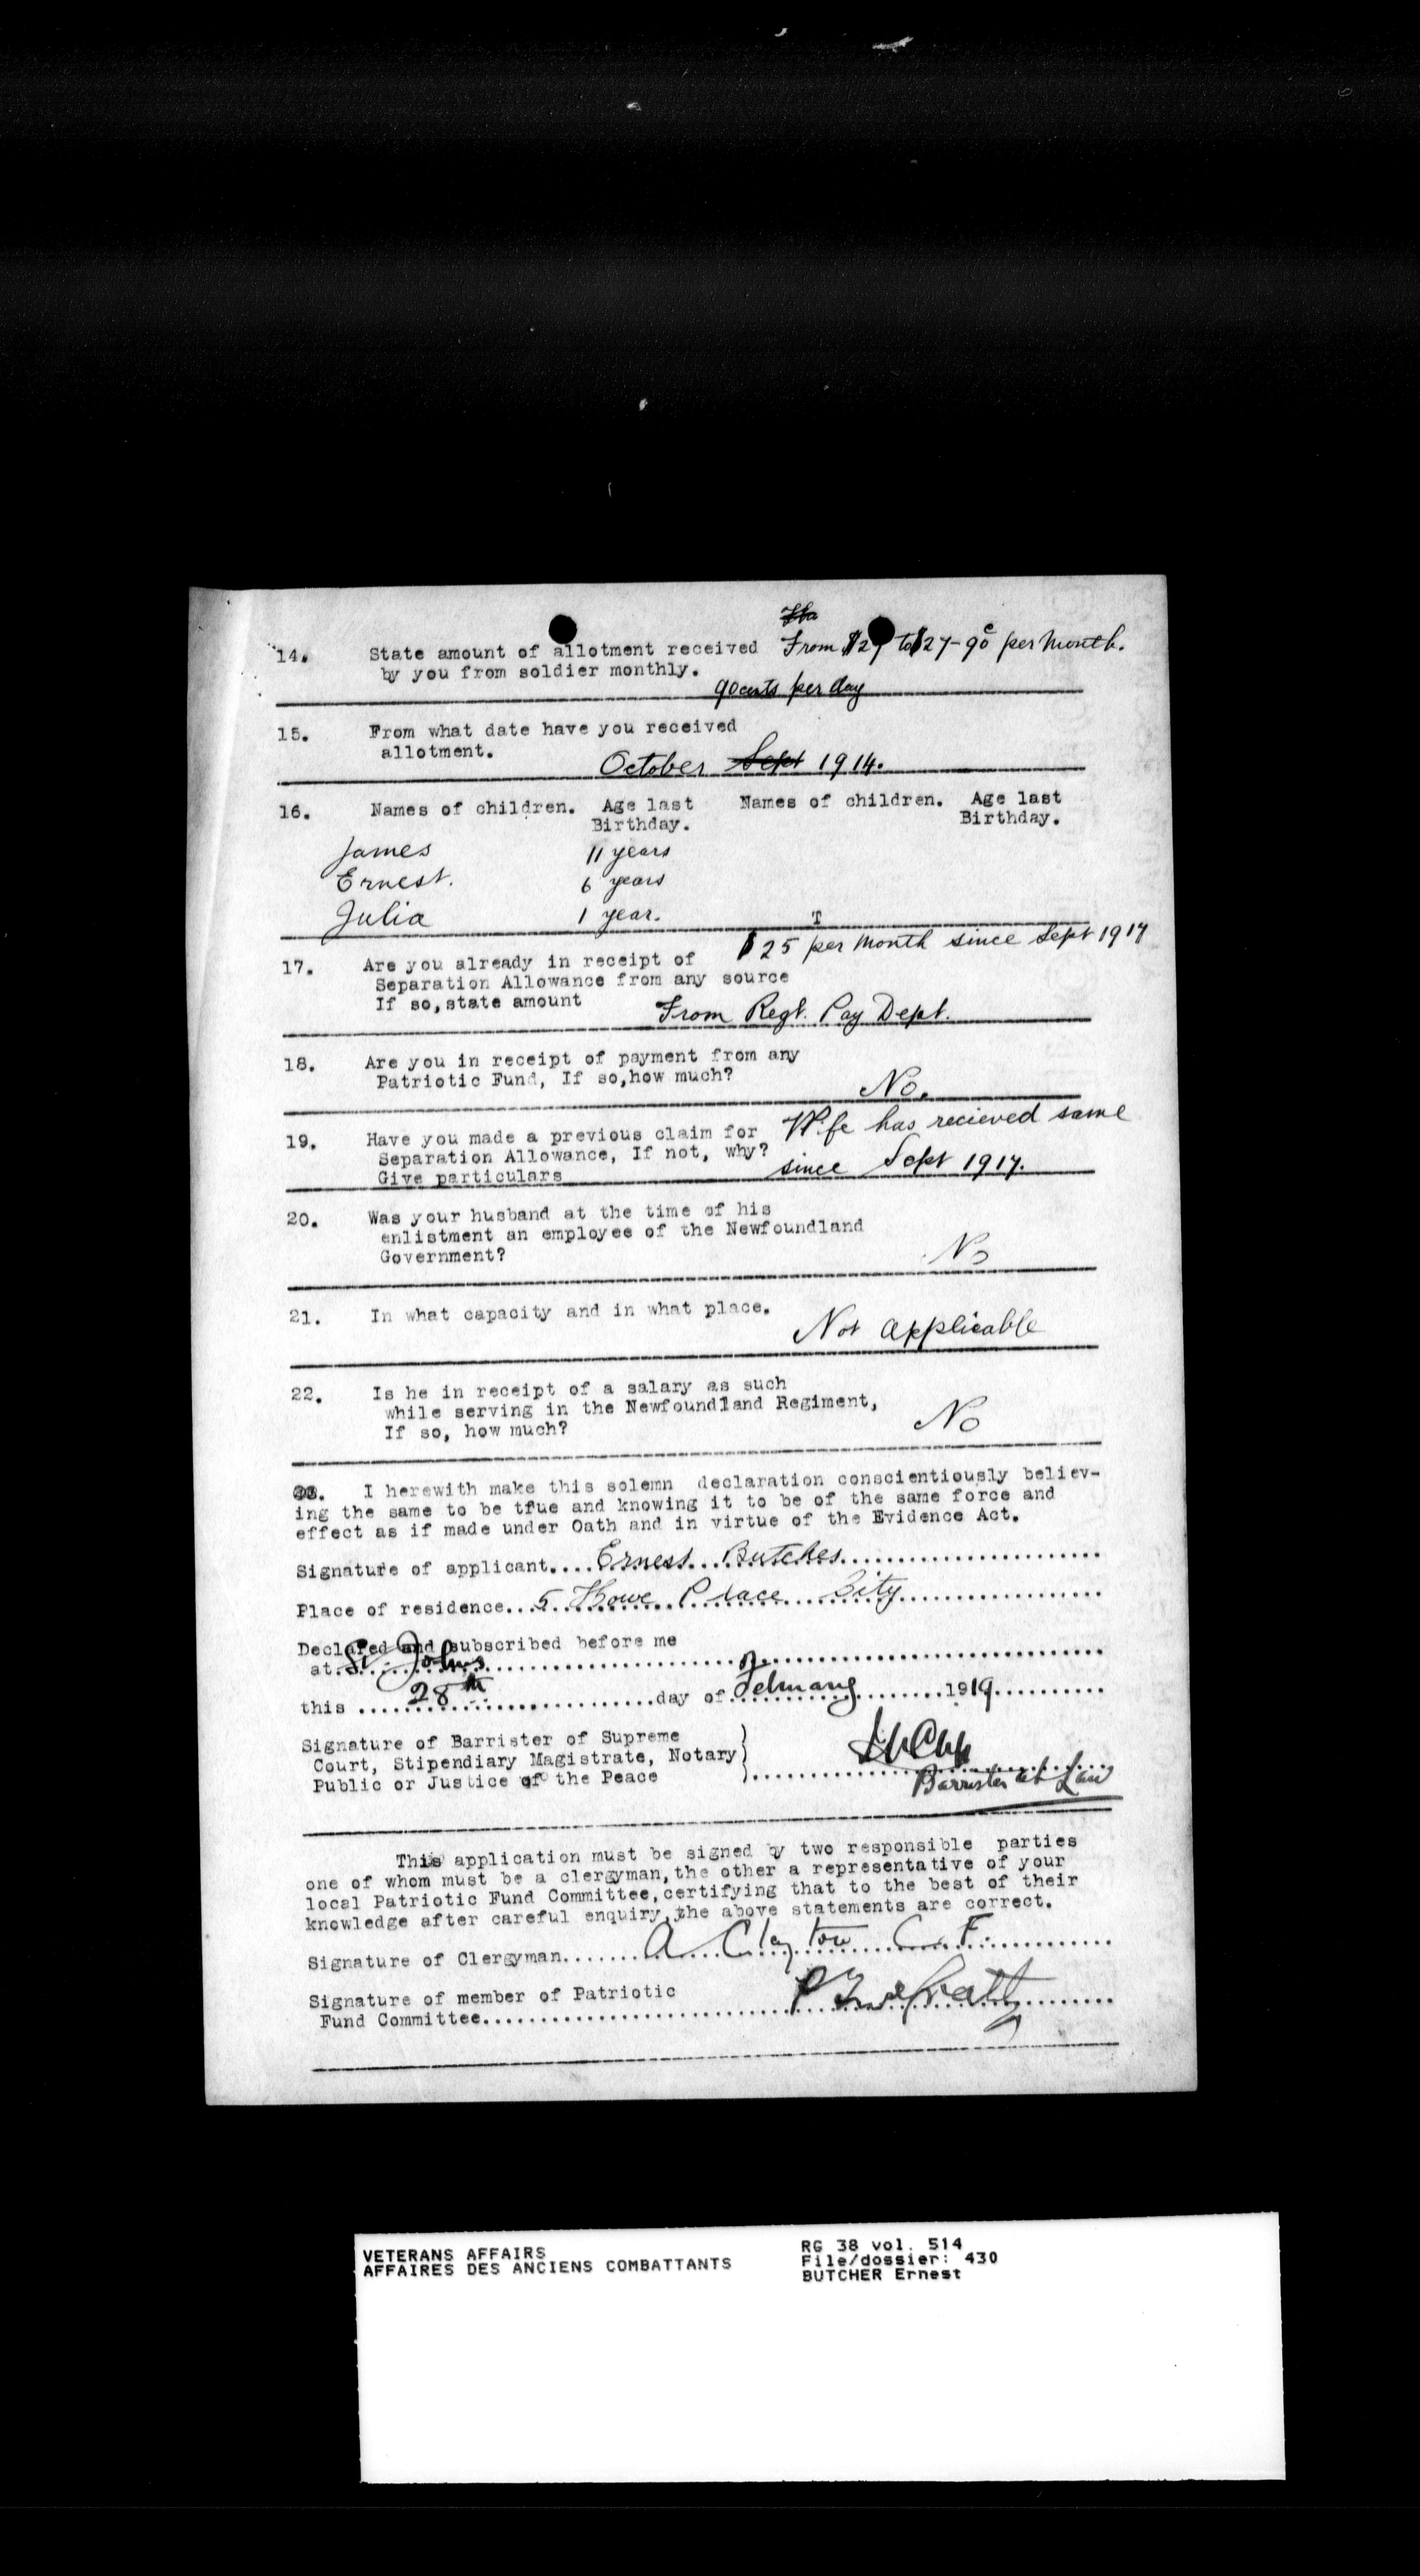 14. State amount of allotment received From $27 to $27-90c per Month.
by you from soldier monthly.
90cents per day
15. From what date have you received
allotment.
October Sept 1914.
16. Names of children. Age last Names of children. Age last
Birthday. Birthday.
James 11 years
Ernest. 6 years
Julia 1 year. T
$25 per Month since Sept 1917
17. Are you already in receipt of
Separation Allowance from any source
If so,state amount From Regt. Pay Dept.
18. Are you in receipt of payment from any
Patriotic Fund, If so,how much? No.
19. Have you made a previous claim for Wife has recieved same
Separation Allowance, If not, why?
Give particulars since Sept 1917.
20. Was your husband at the time of his
enlistment an employee of the Newfoundland
Government? No
21. In what capacity and in what place.
Not applicable
22. Is he in receipt of a salary as such
while serving in the Newfoundland Regiment,
If so, how much? No
I herewith make this solemn declaration conscientiously believ-
ing the same to be true and knowing it to be of the same force and
effect as if made under Oath and in virtue of the Evidence Act.
Signature of applicant....Ernest Butcher
Place of residence...5 Howe Place City
Declared and subscribed before me
at St. Johns
this 28th day of February 1919
Signature of Barrister of Supreme
Court, Stipendiary Magistrate, Notary
Public or Justice of the Peace
Barrister at Law
This application must be signed by two responsible parties
one of whom must be a clergyman,the other a representative of your
local Patriotic Fund Committee,certifying that to the best of their
knowledge after careful enquiry,the above statements are correct.
Signature of Clergyman....... A Clayton C. F.
Signature of member of Patriotic
Fund Committee
VETERANS AFFAIRS
AFFAIRES DES ANCIENS COMBATTANTS
RG 38 vol. 514
File/dossier: 430
BUTCHER Ernest